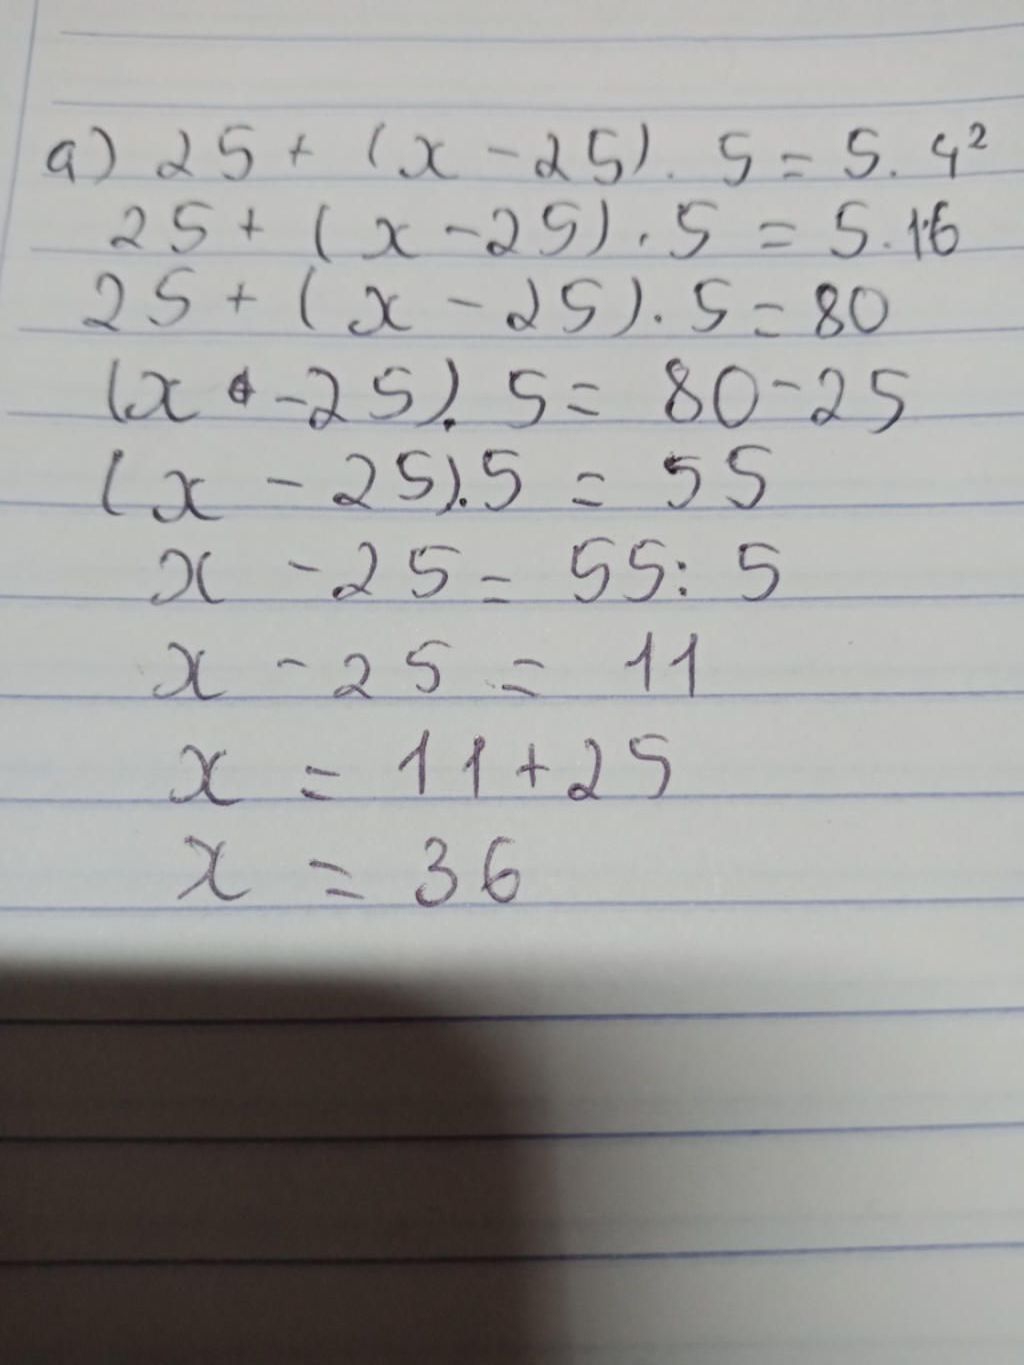 a) 25 + (x - 25) . 5 = 5. 4²
25 + (x - 25) . 5 = 5.16
25 + (x - 25). 5 = 80
(x - 25). 5 = 80 - 25
(x - 25).5 = 55
x - 25 = 55: 5
x - 25 = 11
x = 11 + 25
x = 36